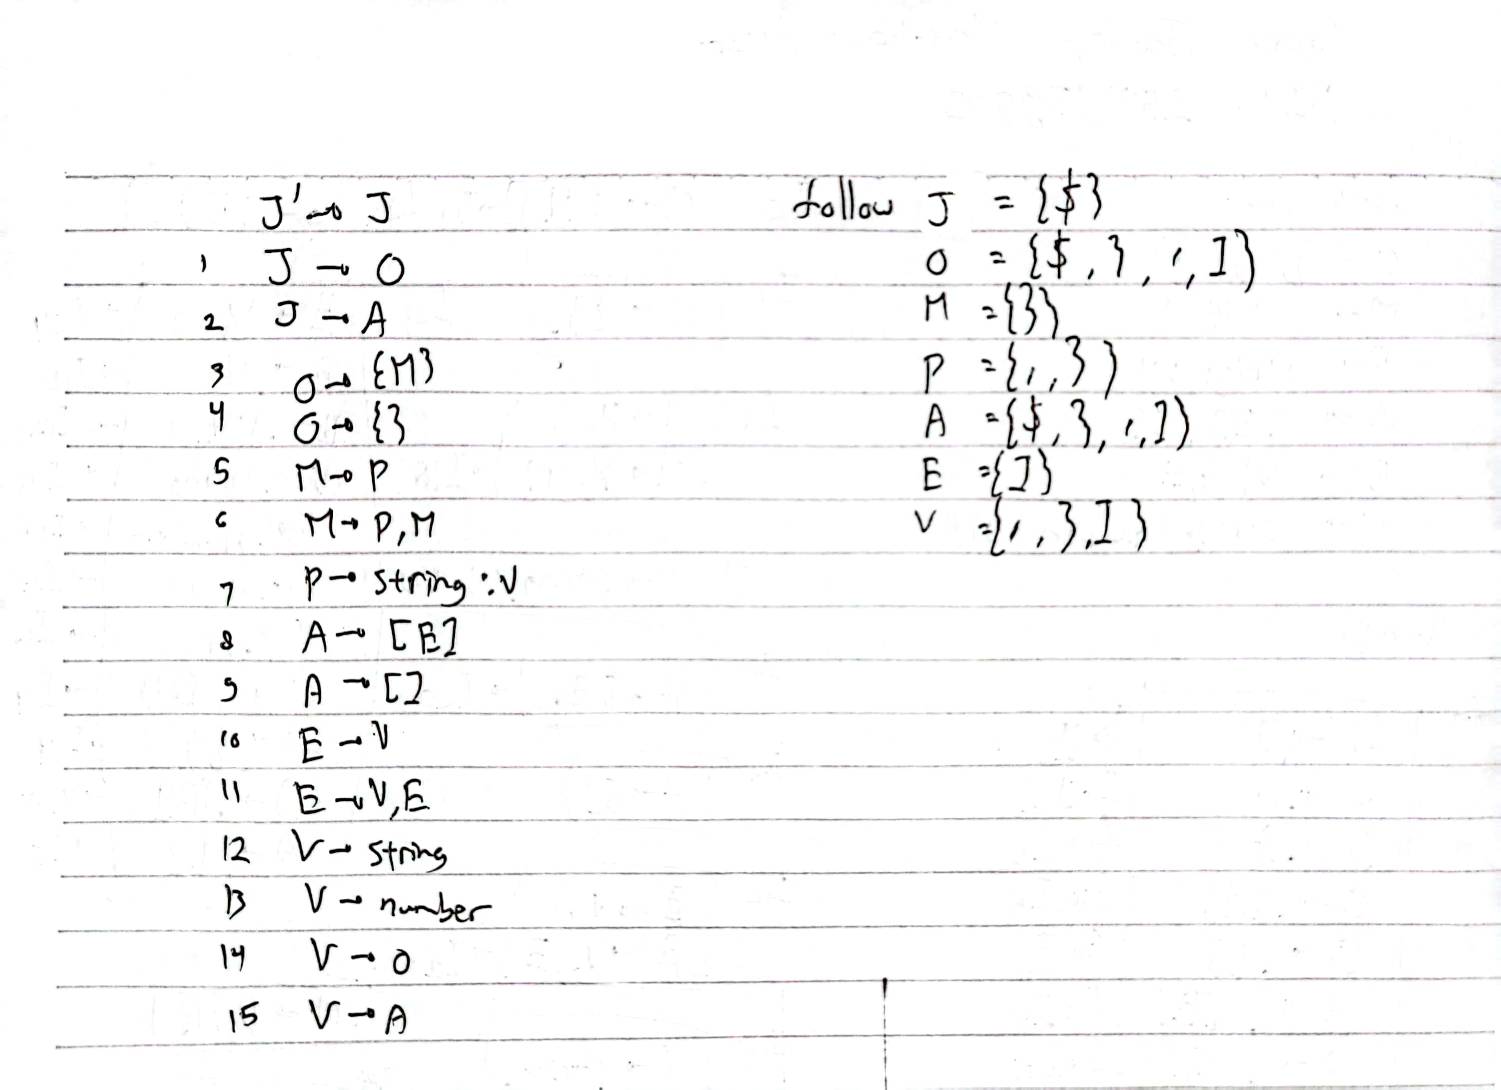 J' → J
1 J → O
2 J → A
3 O → {M}
4 O → {}
5 M → P
6 M → P,M
7 P → string : V
8 A → [E]
9 A → []
10 E → V
11 E → V,E
12 V → string
13 V → number
14 V → O
15 V → A
follow J = {$}
O = {$, }, ,, ]}
M = {}}
P = {,, }}
A = {$, }, ,, ]}
E = {]}
V = {,, }, ]}